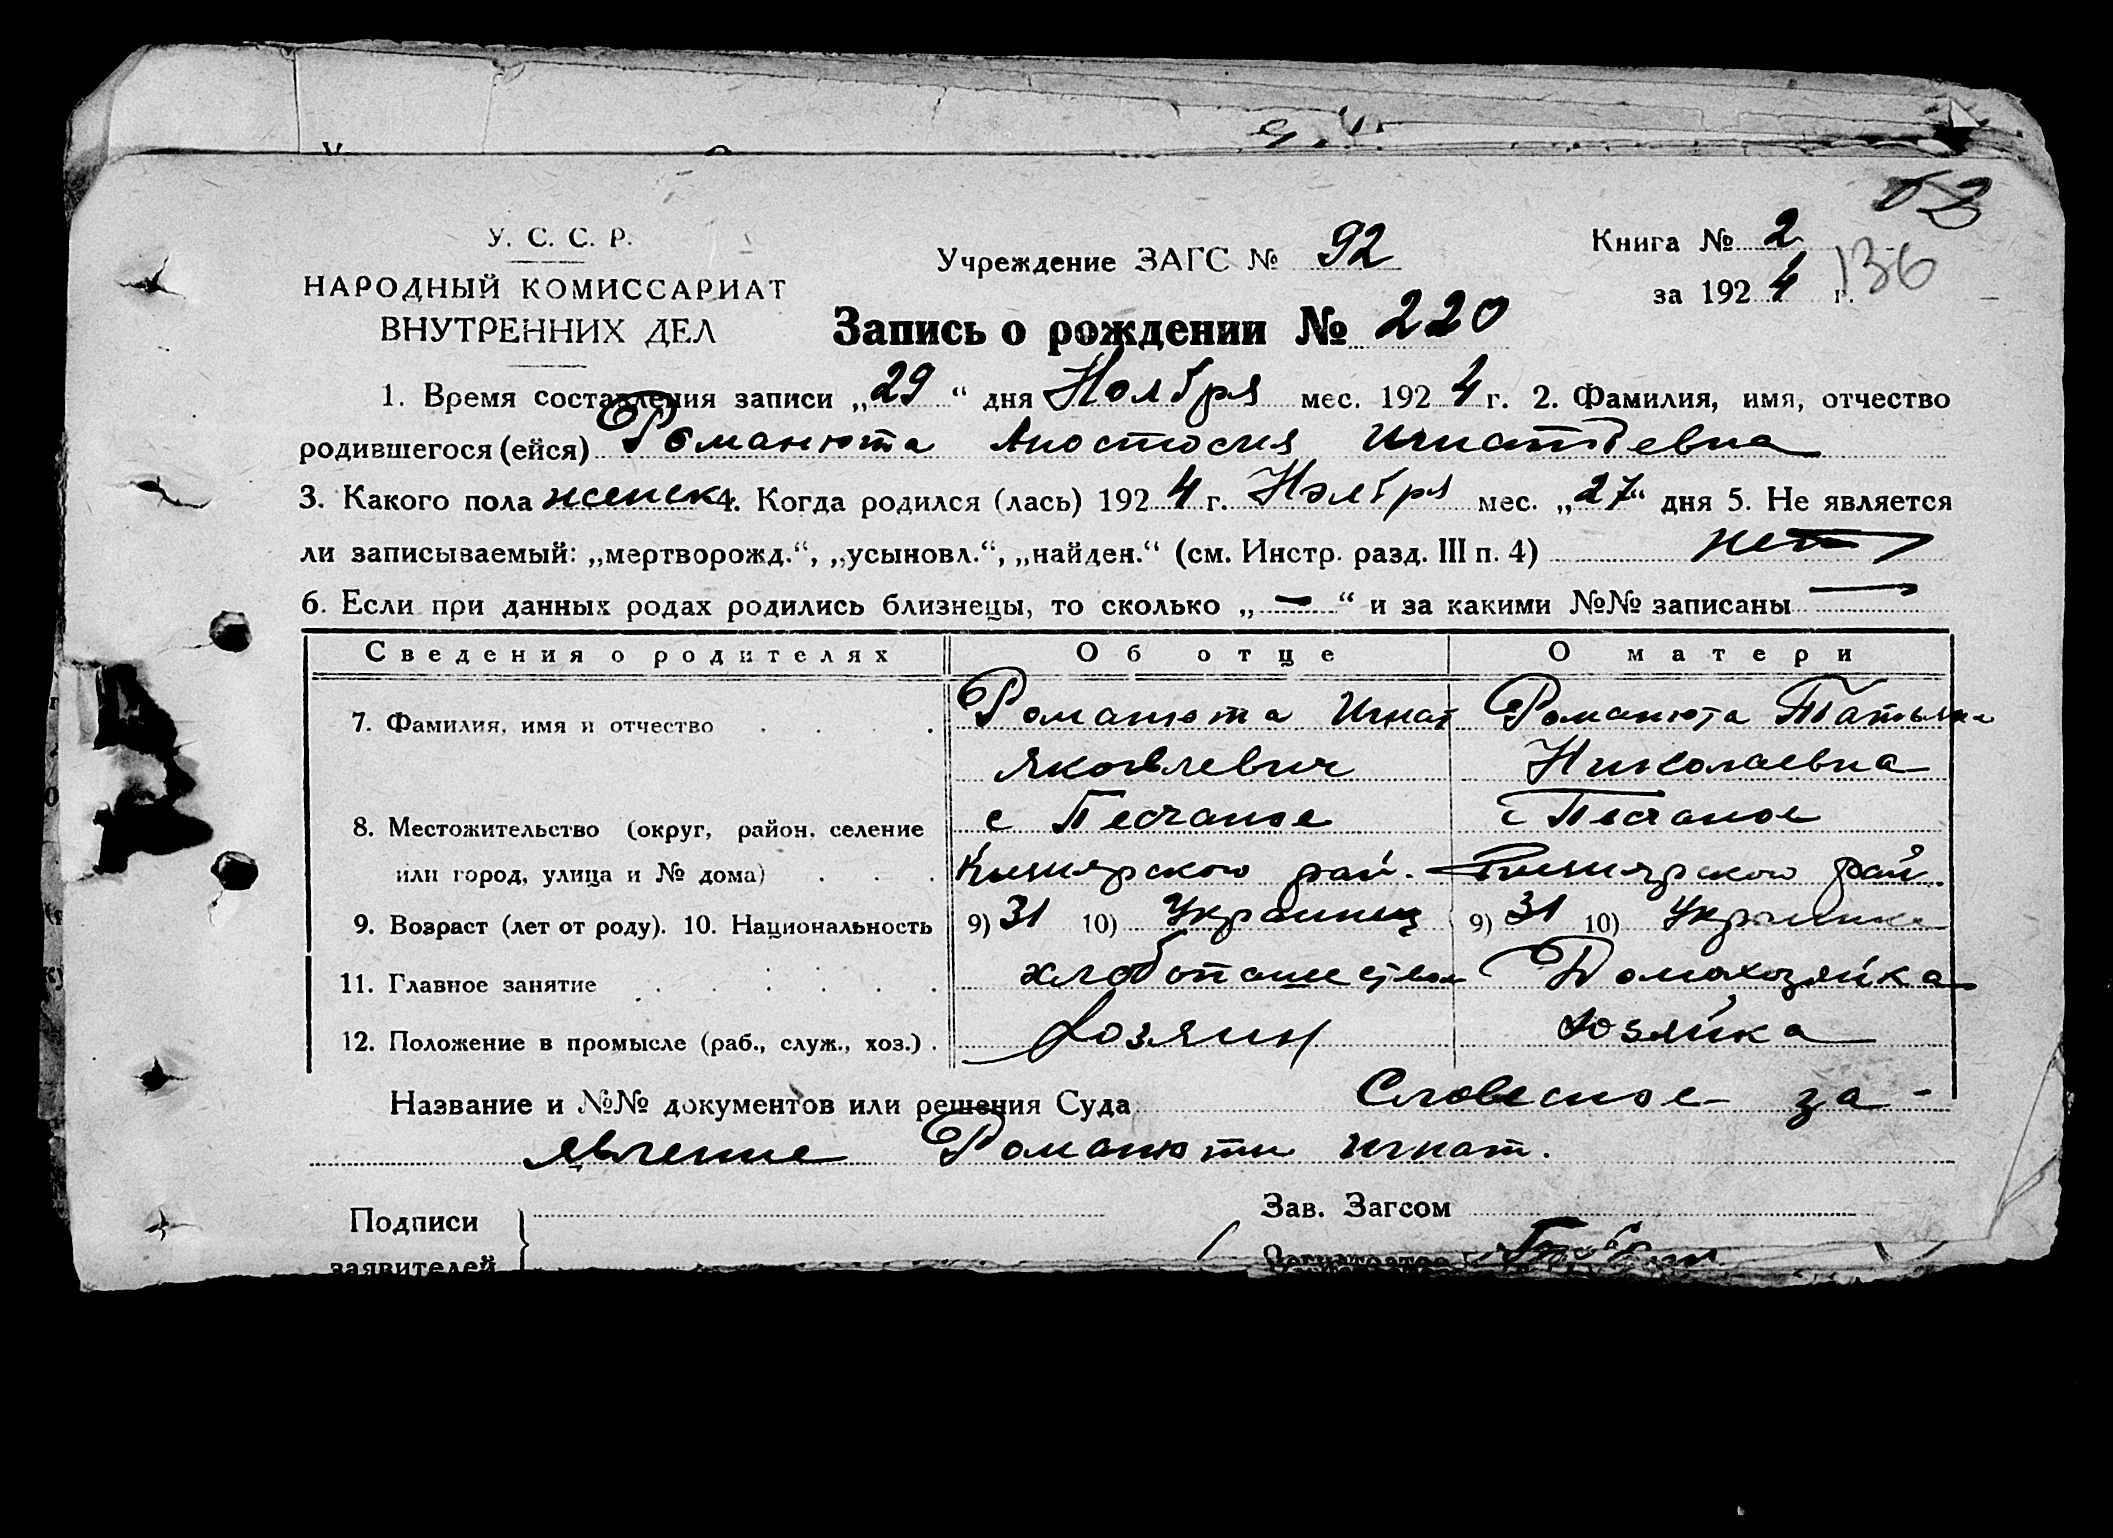 У. С. С. Р.
НАРОДНЫЙ КОМИССАРИАТ
ВНУТРЕННИХ ДЕЛ
Учреждение ЗАГС № 92
Книга № 2
за 1924 г.
136
Запись о рождении № 220
1. Время составления записи „29“ дня Ноября мес. 1924 г. 2. Фамилия, имя, отчество
родившегося (ейся) Романюта Апостосия Игнатьевна
3. Какого пола женск 4. Когда родился (лась) 1924 г. Ноября мес. „27“ дня 5. Не является
ли записываемый: „мертворожд.“, „усыновл.“, „найден.“ (см. Инстр. разд. III п. 4) нет
6. Если при данных родах родились близнецы, то сколько „—“ и за какими №№ записаны —
Сведения о родителях Об отце О матери
7. Фамилия, имя и отчество Романюта Игнат Романюта Татьяна
Яковлевич Николаевна
8. Местожительство (округ, район, селение с Песчаное с Песчаное
или город, улица и № дома) рай. рай
9. Возраст (лет от роду). 10. Национальность 9) 31 10) Украинец 9) 31 10) Украинка
11. Главное занятие Домохозяйка
12. Положение в промысле (раб., служ., хоз.) Хозяин Хозяйка
Название и №№ документов или решения Суда Словесное за-
явление Романюты Игнат.
Подписи
заявителей
Зав. Загсом